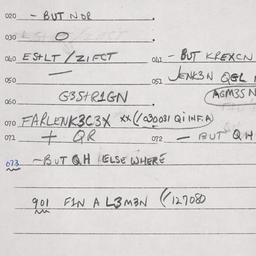 020 - BUT NOR
030 O
040 ESTLT / ZIFCT 041 - BUT KREXCN
050 — 051 JENK3N QGL
060 G3STR1GN AGM3S N
070 FARLENK3C3X xx(/030031 QINF.A)
071 + QR 072 - BUT QH
073 - BUT QH ELSEWHERE
901 F1N A L3M3N (/127080